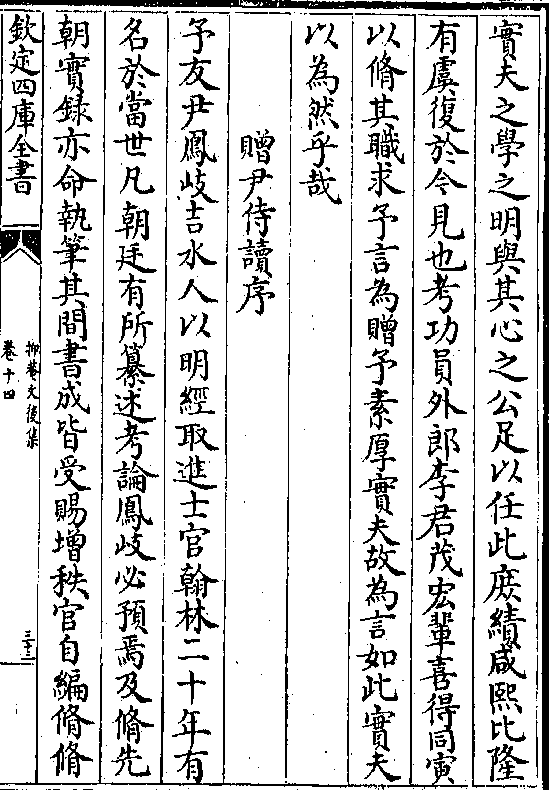 實夫之學之明與其心之公足以任此庶績咸熙比隆
有虞復於今見也考功員外郎李君茂宏輩喜得同寅
以脩其職求予言為贈予素厚實夫故為言如此實夫
以為然乎哉
贈尹侍讀序
予友尹鳳岐吉水人以明經取進士官翰林二十年有
名於當世凡朝廷有所纂述考論鳳岐必預焉及脩先
朝實録亦命執筆其間書成皆受賜增秩官自編脩脩
欽定四庫全書
抑菴文後集
卷十四
三十三